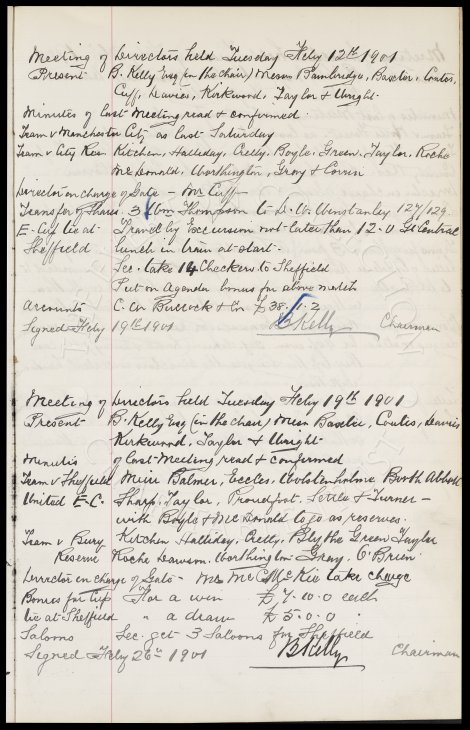 Meeting of Directors held Tuesday Feby 12th 1901
Present B. Kelly Esq (in the chair) Messrs Bainbridge, Baxter, Coates,
Cuff, Davies, Kirkwood, Taylor & Wright.
Minutes of last Meeting read & confirmed
Team v Manchester City as last Saturday
Team v City Res Kitchen, Halliday, Crelly, Boyle, Green, Taylor, Roche
McDonald, Worthington, Gray & Corrin
Director in charge of Gate - Mr Cuff
Transfer of Shares 3 Wm Thompson to D. W. Winstanley 127/129.
E. Cup tie at Travel by Excursion not later than 12.0 St Central
Sheffield lunch in train at start.
Sec. take 14 Checkers to Sheffield
Put on Agenda bonus for above match
Accounts C. W. & Co £38.11.2
Signed Feby 19th 1901 B Kelly Chairman
Meeting of Directors held Tuesday Feby 19th 1901
Present B. Kelly Esq (in the chair) Messrs Baxter, Coates, Davies
Kirkwood, Taylor & Wright
Minutes of last Meeting read & confirmed
Team v Sheffield Muir Balmer, Eccles, Wolstenholme Booth Abbott
United E.C. Sharp, Taylor, Proudfoot, Settle & Turner -
with Boyle & McDonald to go as reserves.
Team v Bury Kitchen Halliday, Crelly, Blythe Green Taylor
Reserve Roche Dawson Worthington Gray. O'Brien
Director in charge of Gate - take charge
Bonus for Cup For a win £7.10.0 each
tie at Sheffield " a draw £5.0.0 "
Saloons Sec. get 3 Saloons for Sheffield
Signed Feby 26th 1901 B Kelly Chairman